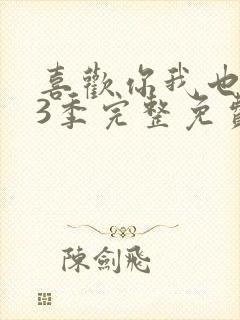 喜歡你我也
3季完整免費
陳劍飛